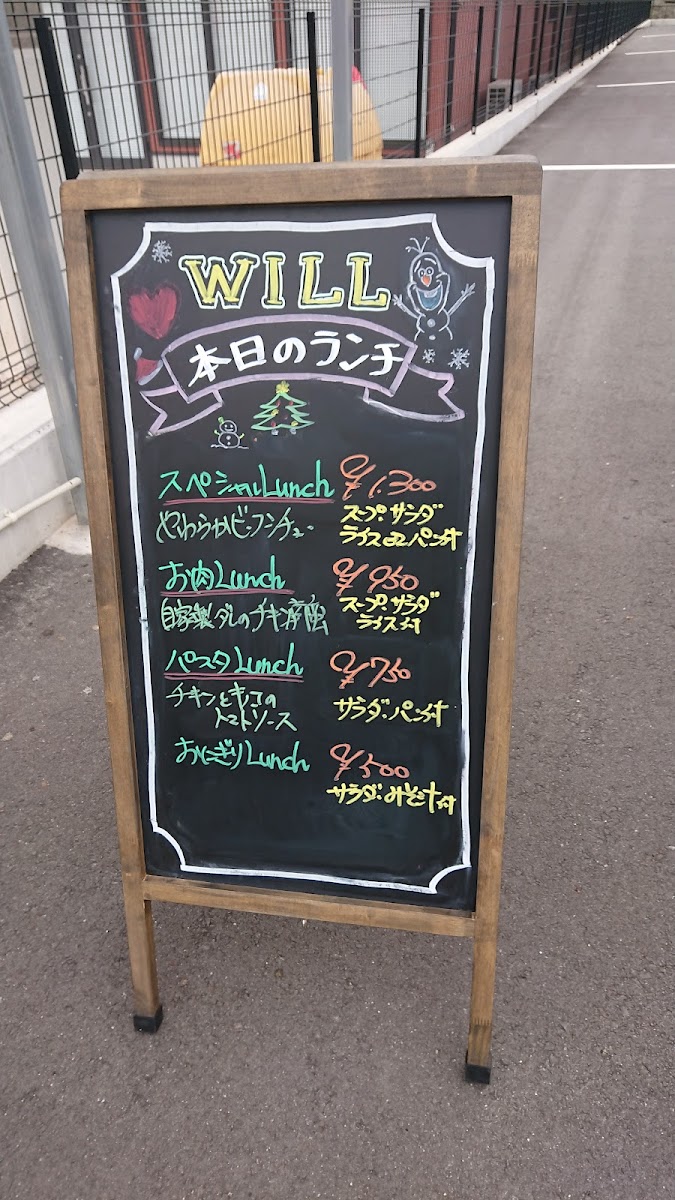 WILL
本日のランチ
スペシャルLunch ¥1.300
やわらかビーフシチュー
スープ.サラダ
ライスorパン付
お肉Lunch ¥950
自家製ダレのチキン南蛮
スープ.サラダ
ライス付
パスタLunch ¥750
チキンとキノコの
トマトソース
サラダ.パン付
おにぎりLunch ¥500
サラダ.みそ汁付